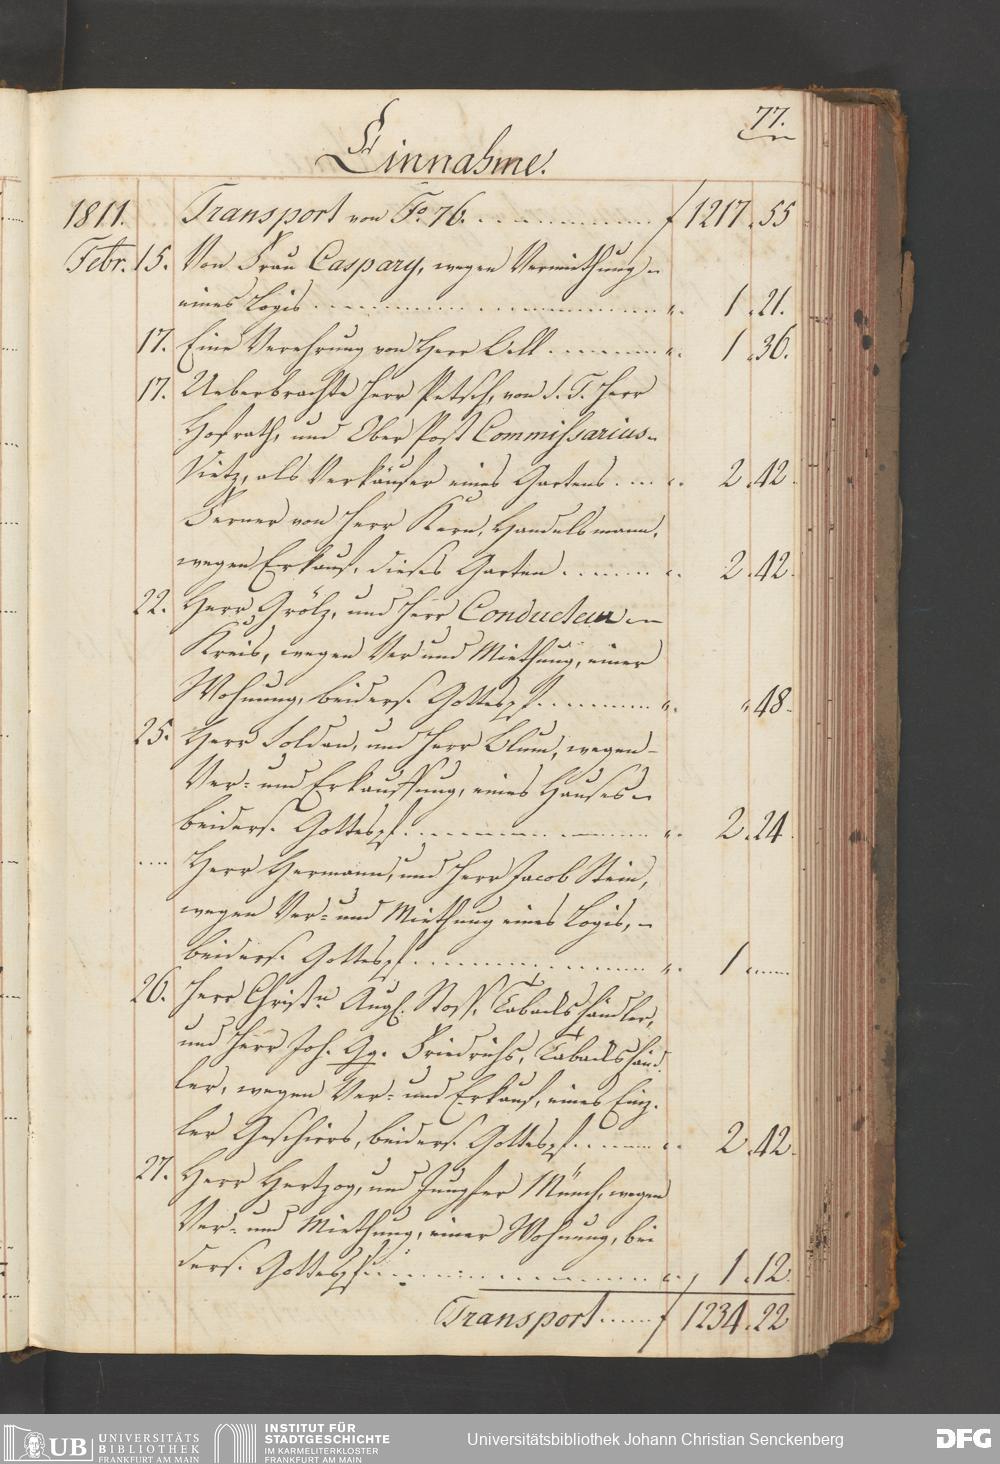 77.
Einnahme.
1811. Transport von Fo. 76. f 1217. 55
Febr. 15. Von Frau Caspary, wegen Vermiethung
eines Logis ". 1. 21.
17. Eine Verehrung von Herr Oell ". 1. 36.
17. Ueberbrachte Herr Petsch, von S. T. Herr
Hofrath, und Ober Post Commissarius
als Verkäufer eines Gartens ". 2. 42.
Ferner von Herr Kern, Handelsmann,
wegen Erkauf, dieses Garten ". 2. 42.
22. Herr Grölz, und Herr Conducteur
Kreis, wegen Ver und Miethung, einer
Wohnung, beiders. Gottespf. ". " 48.
25. Herr Soldan, und Herr Blum, wegen
Ver- und Erkauffung, eines Hauses
beiders. Gottespf. ". 2. 24.
.... Herr Hermann, und Herr Jacob Stein,
wegen Ver- und Miethung eines Logis,
beiders. Gottespf. ". 1.
26. Herr Christn. Aug. Tabackshändler,
und Herr Joh. Gg. Friedrichs, Tabackshänd-
ler, wegen Ver- und Erkauf, eines
Geschirrs, beiders. Gottespf. ". 2. 42.
27. Herr Hertzog, und Jungfer Münch, wegen
Ver- und Miethung, einer Wohnung, bei
ders. Gottespf. ". 1. 12.
Transport f 1234. 22
UB UNIVERSITÄTS
BIBLIOTHEK
FRANKFURT AM MAIN
INSTITUT FÜR
STADTGESCHICHTE
IM KARMELITERKLOSTER
FRANKFURT AM MAIN
Universitätsbibliothek Johann Christian Senckenberg
DFG